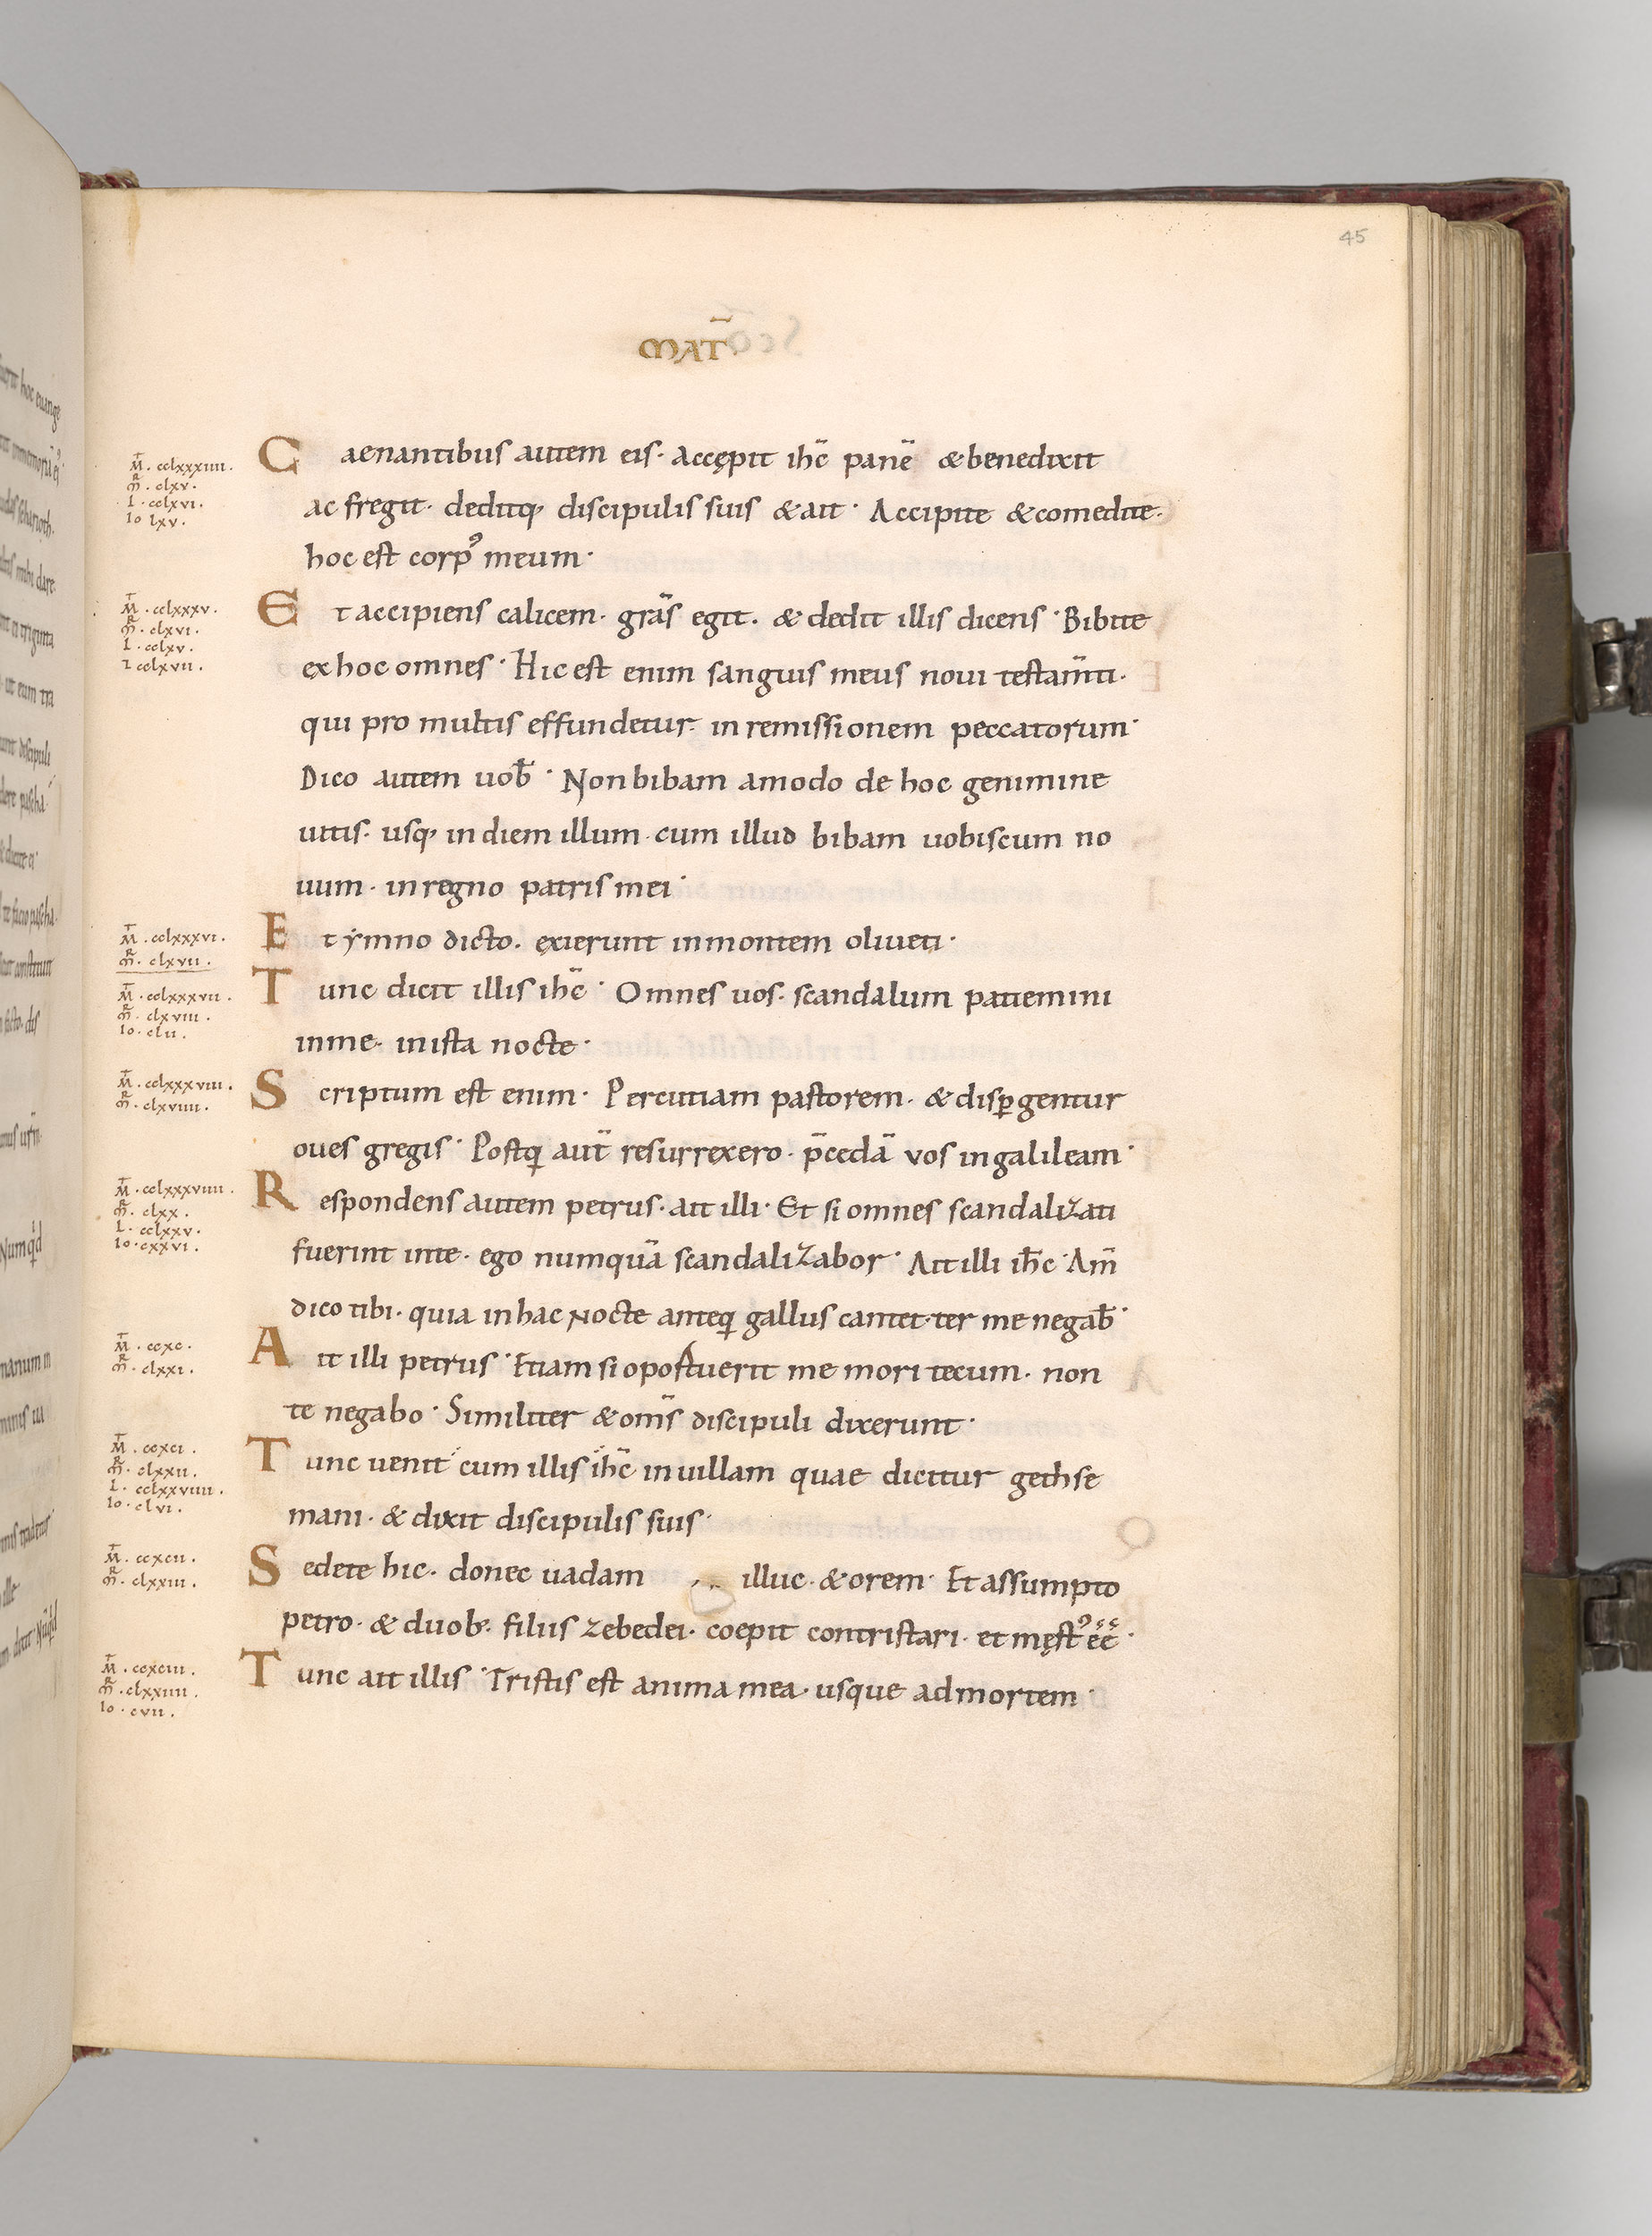 45
MAT̄
M̄ . cclxxxiiii .
M̄R . clxv .
L . cclxvi .
Io lxv .
Caenantibus autem eis · accępit ihc̄ panē & benedixit
ac fregit · deditq; discipulis suis & ait · Accipite & comedite ·
hoc est corpꝰ meum ·
M̄ . cclxxxv .
M̄R . clxvi .
L . cclxv .
L cclxvii .
Et accipiens calicem · grās egit . & dedit illis dicens · Bibite
ex hoc omnes · Hic est enim sanguis meus noui testam̄ti ·
qui pro multis effundetur · in remissionem peccatorum ·
Dico autem uob̄ · Non bibam amodo de hoc genimine
uitis · usq; in diem illum · cum illud bibam uobiscum no
uum · in regno patris mei ·
M̄ . cclxxxvi .
M̄R . clxvii .
Et ẏmno dicto . exierunt in montem oliueti ·
M̄ . cclxxxvii .
M̄R . clxviii .
Io . clii .
Tunc dicit illis ihc̄ · Omnes uos · scandalum patiemini
in me · in ista nocte ·
M̄ . cclxxxviii .
M̄R . clxviiii .
Scriptum est enim · Percutiam pastorem · & disꝑgentur
oues gregis · Postq̨ aut̄ resurrexero · p̄cedā vos in galileam ·
M̄ . cclxxxviiii .
M̄R . clxx .
L . cclxxv .
Io . cxxvi .
Respondens autem petrus · ait illi · Et si omnes scandalizati
fuerint in te · ego numquā scandalizabor · Ait illi ih̄c · Am̄
dico tibi · quia in hac nocte anteq̨ gallus cantet · ter me negab̄ ·
M̄ . ccxc .
M̄R . clxxi .
Ait illi petrus · Etiam si opostuerit me mori tecum · non
te negabo · Similiter & om̄s discipuli dixerunt ·
M̄ . ccxci .
M̄R . clxxii .
L . cclxxviiii .
Io . clvi .
Tunc uenit cum illis ihc̄ in uillam quae dicitur gethse
mani · & dixit discipulis suis ·
M̄ . ccxcii .
M̄R . clxxiii .
Sedete hic · donec uadam illuc · & orem · Et assumpto
petro · & duob; · filiis zebedei · coepit contristari · et męstꝰ eē ·
M̄ . ccxciii .
M̄R . clxxiiii .
Io . cvii .
Tunc ait illis · Tristis est anima mea · usque ad mortem ·